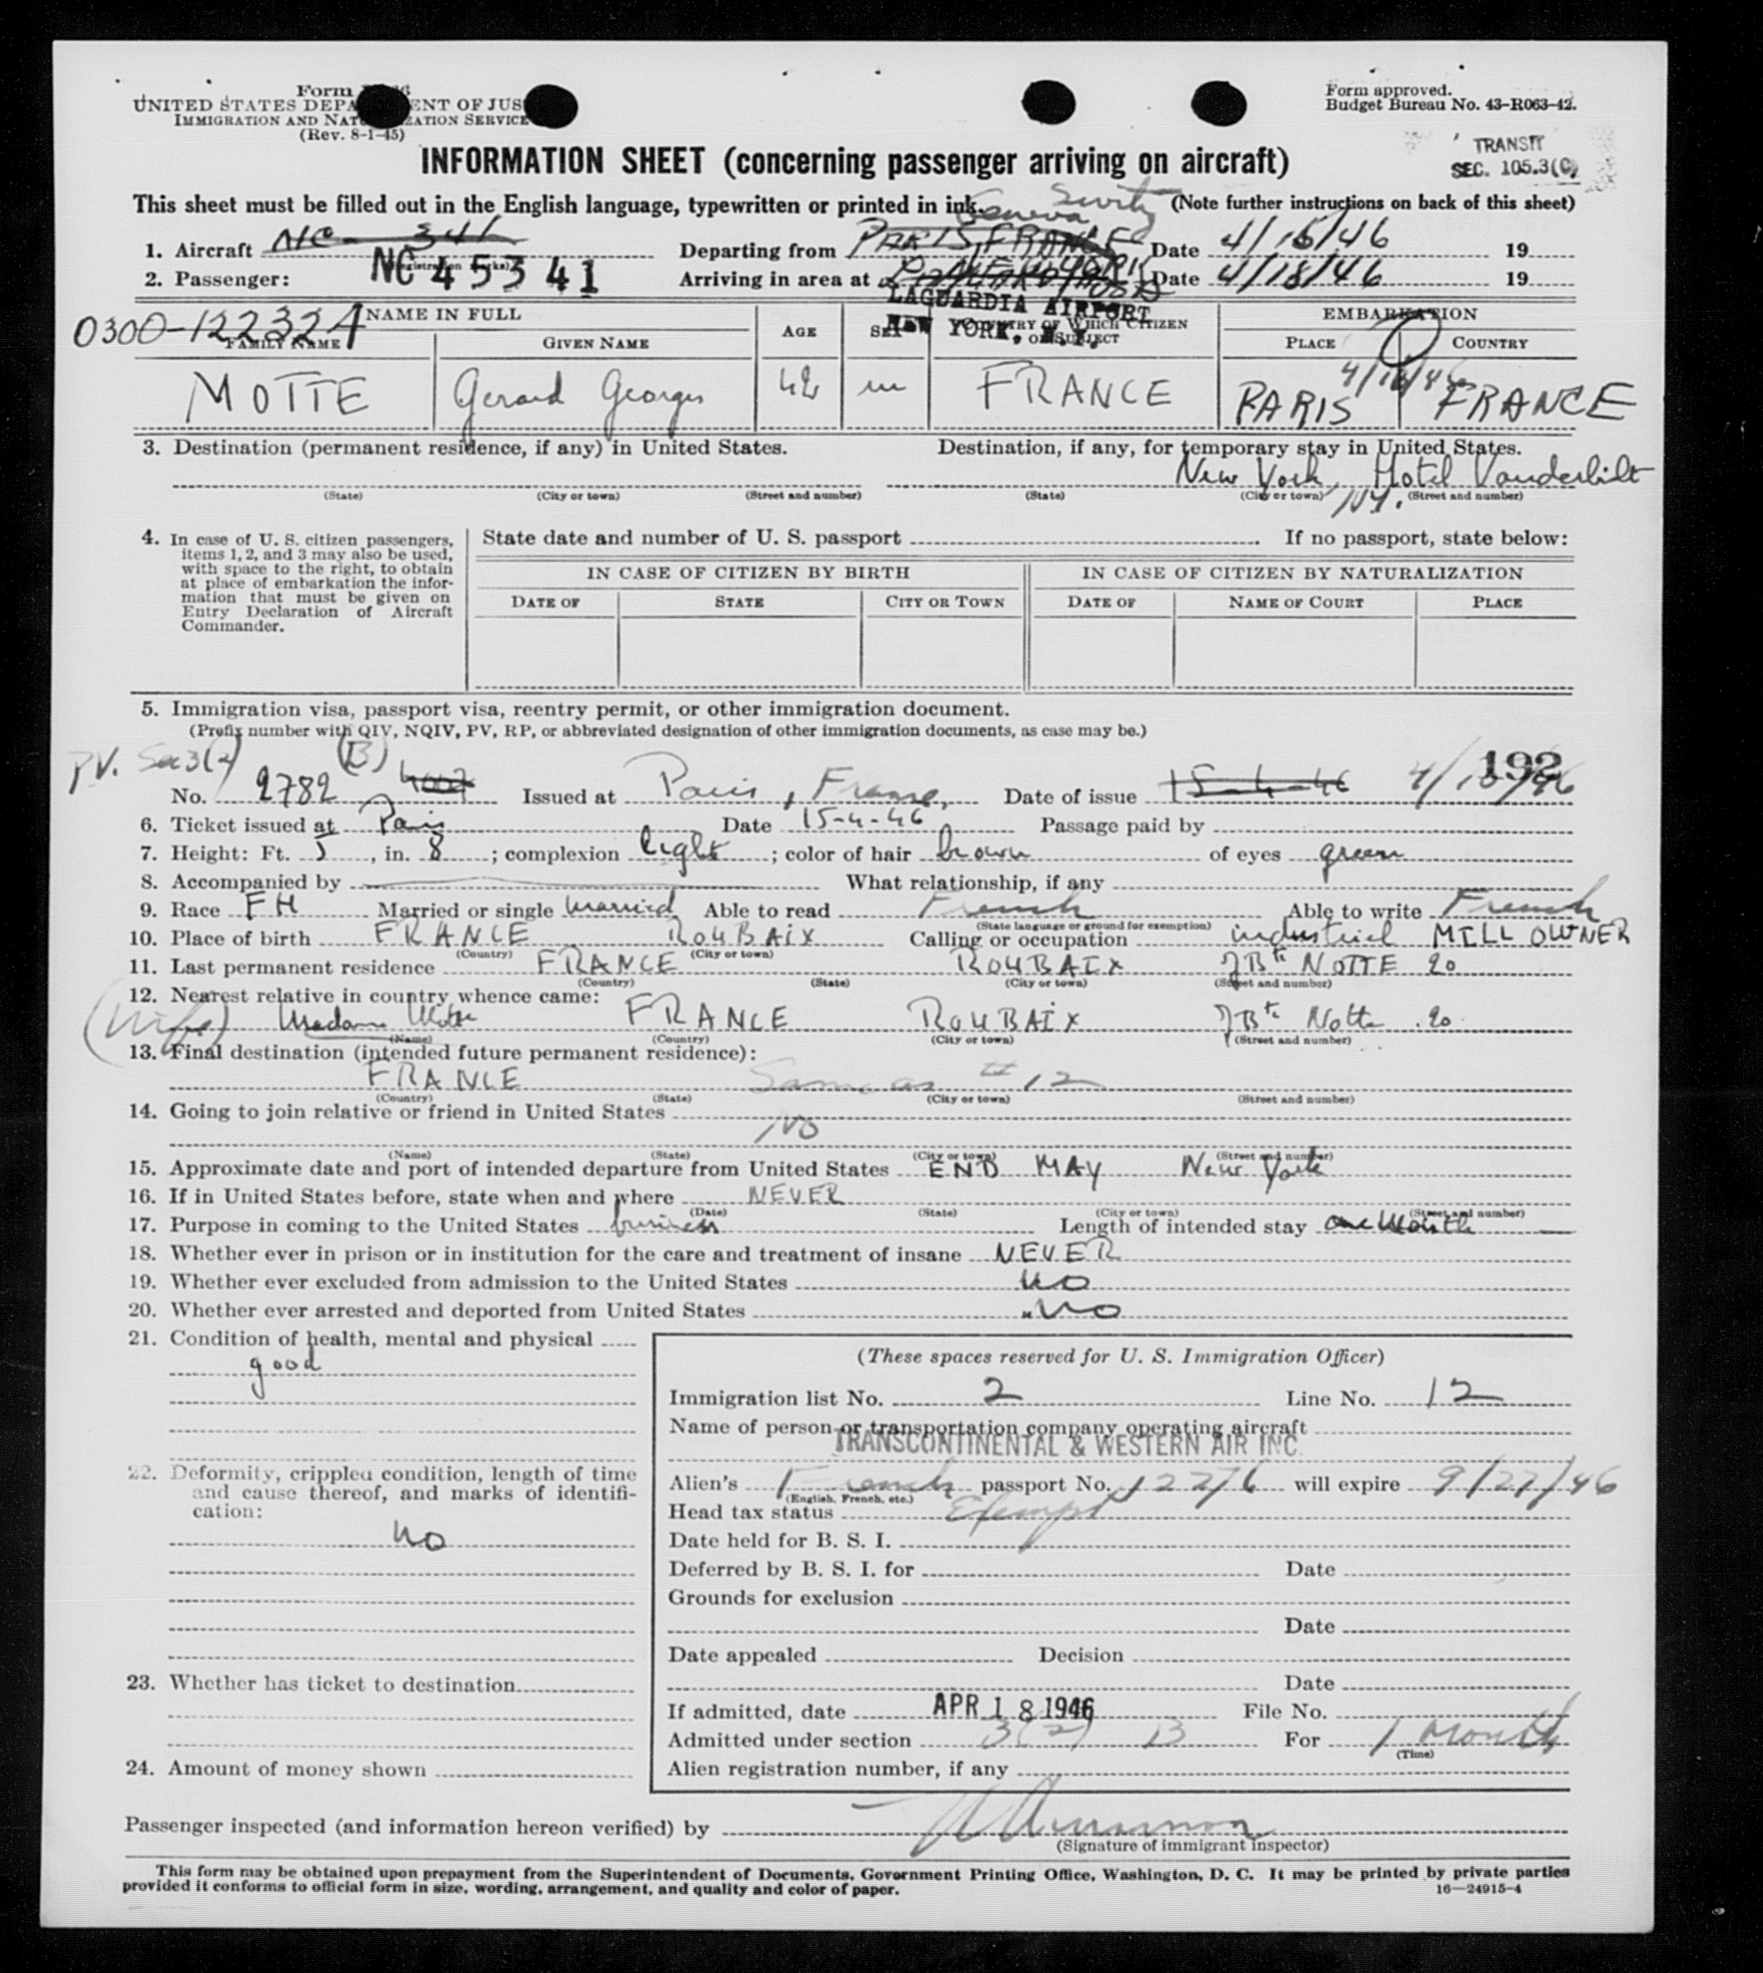 Form
UNITED STATES DEPA ENT OF JUS
IMMIGRATION AND NAT ZATION SERVICE
(Rev. 8-1-45)
Form approved.
Budget Bureau No. 43-R063-42.
TRANSIT
SEC. 105.3(C)
INFORMATION SHEET (concerning passenger arriving on aircraft)
This sheet must be filled out in the English language, typewritten or printed in ink. (Note further instructions on back of this sheet)
Geneva
1. Aircraft NC 341 Departing from PARIS, FRANCE Date 4/16/46 19
2. Passenger: NC 45341 Arriving in area at Date 4/18/46 19
LAGUARDIA AIRPORT
NEW YORK, N.Y.
0300-122324
NAME IN FULL AGE SEX COUNTRY OF WHICH CITIZEN OR SUBJECT EMBARKATION
FAMILY NAME GIVEN NAME PLACE COUNTRY
4/16/46
MOTTE Gerard Georges 42 m FRANCE PARIS FRANCE
3. Destination (permanent residence, if any) in United States. Destination, if any, for temporary stay in United States.
New York, Hotel Vanderbilt
(State) (City or town) (Street and number) (State) (City or town) NY. (Street and number)
4. In case of U. S. citizen passengers, items 1, 2, and 3 may also be used, with space to the right, to obtain at place of embarkation the information that must be given on Entry Declaration of Aircraft Commander.
State date and number of U. S. passport If no passport, state below:
IN CASE OF CITIZEN BY BIRTH IN CASE OF CITIZEN BY NATURALIZATION
DATE OF STATE CITY OR TOWN DATE OF NAME OF COURT PLACE
5. Immigration visa, passport visa, reentry permit, or other immigration document.
(Prefix number with QIV, NQIV, PV, RP, or abbreviated designation of other immigration documents, as case may be.)
PV. Sec 3(2) (B) 192
No. 2782 Issued at Paris, France, Date of issue 15-4-46 4/16/46
6. Ticket issued at Paris Date 15-4-46 Passage paid by
7. Height: Ft. 5, in. 8; complexion light; color of hair brown of eyes green
8. Accompanied by What relationship, if any
9. Race FH Married or single married Able to read French Able to write French
(State language or ground for exemption)
10. Place of birth FRANCE ROUBAIX Calling or occupation industriel MILL OWNER
(Country) (City or town)
11. Last permanent residence FRANCE ROUBAIX J Bte NOTTE 20
(Country) (State) (City or town) (Street and number)
12. Nearest relative in country whence came:
(Wife) Madame Motte FRANCE ROUBAIX J Bte Notte. 20
(Name) (Country) (City or town) (Street and number)
13. Final destination (intended future permanent residence):
FRANCE Same as #12
(Country) (State) (City or town) (Street and number)
14. Going to join relative or friend in United States
NO
(Name) (State) (City or town) (Street and number)
15. Approximate date and port of intended departure from United States END MAY New York
16. If in United States before, state when and where NEVER
(Date) (State) (City or town) (Street and number)
17. Purpose in coming to the United States business Length of intended stay one month
18. Whether ever in prison or in institution for the care and treatment of insane NEVER
19. Whether ever excluded from admission to the United States no
20. Whether ever arrested and deported from United States no
21. Condition of health, mental and physical
good
22. Deformity, crippled condition, length of time and cause thereof, and marks of identification:
no
23. Whether has ticket to destination
24. Amount of money shown
(These spaces reserved for U. S. Immigration Officer)
Immigration list No. 2 Line No. 12
Name of person or transportation company operating aircraft
TRANSCONTINENTAL & WESTERN AIR INC.
Alien's French passport No. 12276 will expire 9/27/46
(English, French, etc.)
Head tax status Exempt
Date held for B. S. I.
Deferred by B. S. I. for Date
Grounds for exclusion
Date
Date appealed Decision
Date
If admitted, date APR 18 1946 File No.
Admitted under section 3(2) B For 1 month
(Time)
Alien registration number, if any
Passenger inspected (and information hereon verified) by
(Signature of immigrant inspector)
This form may be obtained upon prepayment from the Superintendent of Documents, Government Printing Office, Washington, D. C. It may be printed by private parties
provided it conforms to official form in size, wording, arrangement, and quality and color of paper. 16—24915-4